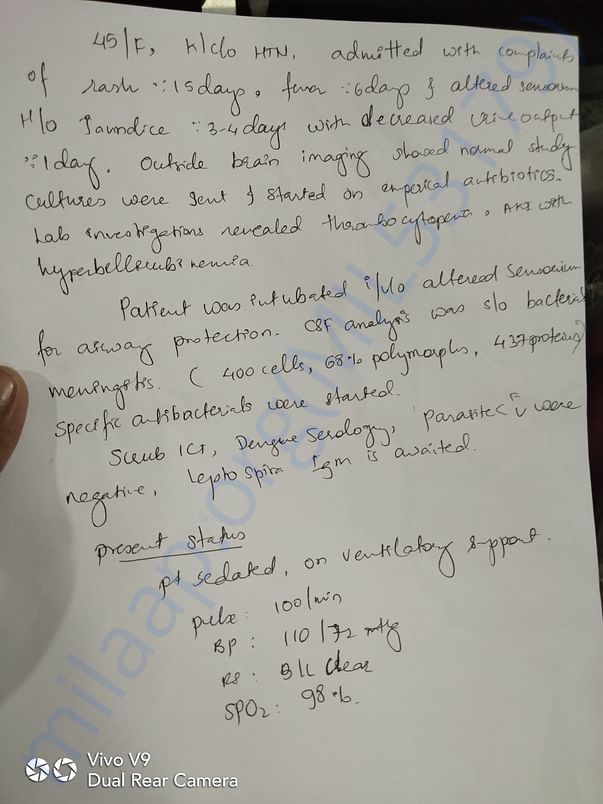 45/F, K/c/o HTN, admitted with complaints
of rash ∵ 15days, fever ∵ 6days & altered sensorium
H/o Jaundice ∵ 3-4 days with decreased urine output
∵ 1day. Outside brain imaging showed normal study
Cultures were sent & started on emperical antibiotics.
Lab investigations revealed thrombocytopenia, AKI with
hyperbellirubinemia.
Patient was intubated i/v/o altered sensorium
for airway protection. CSF analysis was s/o bacterial
meningitis. ( 400 cells, 68% polymorphs, 437 proteins)
Specific antibacterials were started.
Scrub ICT, Dengue Serology, Parasite F V were
negative, Leptospira IgM is awaited.
present status
pt sedated, on ventilatory support.
pulse: 100/min
BP: 110/72 mmHg
RS: B/L clear
SPO2: 98%.
milaap.org(MIL531179)
Vivo V9
Dual Rear Camera